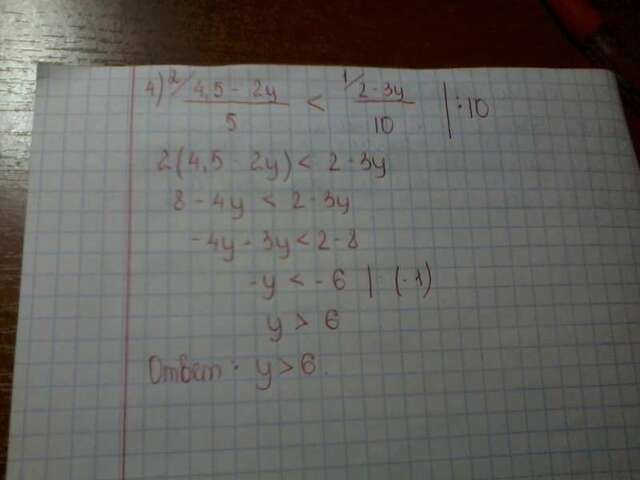 4) ²/ 4,5 - 2y / 5 < ¹/ 2 - 3y / 10 | : 10
2(4,5 - 2y) < 2 - 3y
8 - 4y < 2 - 3y
-4y - 3y < 2 - 8
-y < -6 | : (-1)
y > 6
Ответ: y > 6.